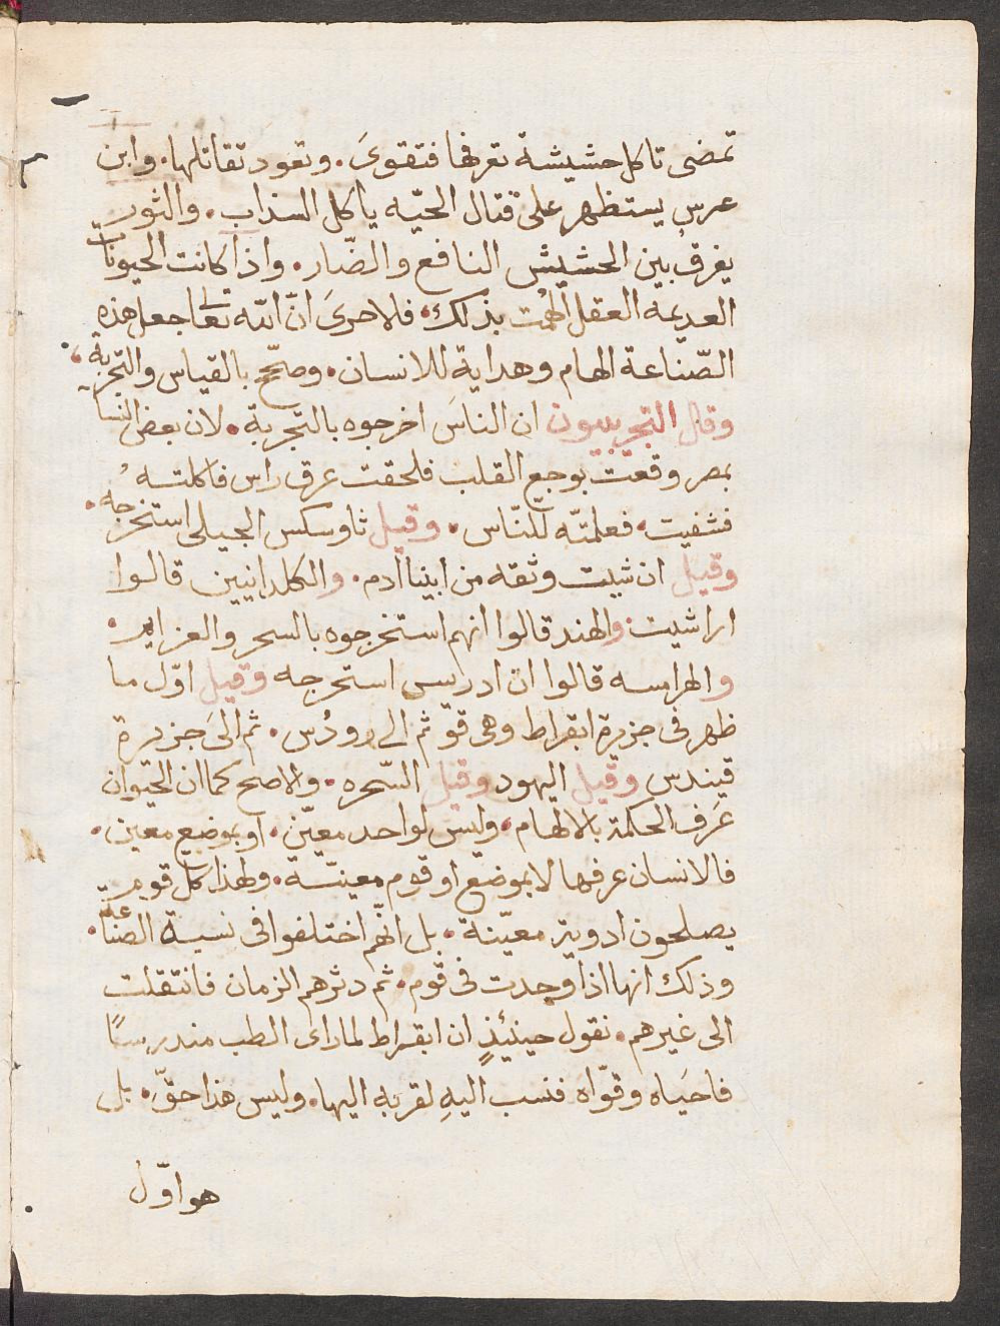 تمضى تاكل حشيشة تعرفها فتقوىَ. وتعود تقاتلها. وابن
عرس يستظهر على قتال الحيّه ياكل السذاب. والثور
يفرق بين الحشيش النافع والضّار. واذا كانت الحيونات
العديمه العقل اُلهمُت بذلك، فلاحرىَ انّ الله تعالى جعل هذه
الصّناعة الهام وهداية للانسان. وصحّح بالقياس والتجربة،
وقال التجريبيون ان الناسَ اخرجوه بالتجربة. لان بعض النسا
بمصر وقعت بوجع القلب فلحقت عرق راس فاكلتهُ
فشفيت. فعلمتّه للنّاس. وقيل ثاوسكس الجبيلى استخرجه.
وقيل ان شيث وثقه من ابينا ادم. والكلدانيين قالوا
ارا شيث. والهند قالوا انهم استخرجوه بالسحر والعزايم.
والهرامسه قالوا ان ادريس استخرجه وقيل اوّل ما
ظهر فى جزيرة ابقراط وهى قوّ ثم الى رودُس. ثم الىَ جزيرة
قيندس وقيل اليهود وقيل السّحره. والاصح كما ان الحَيوان
عَرف الحكمة بالالهام، وليس لواحد معيّن. او بموضع معين.
فالانسان عرفها لا بموضع او قوم معينّة. ولهذا كل قوم
يصلحون ادوية معيّنة. بل انّهم اختلفوا فى نسبة الصّناعة.
وذلك انها اذا وجدت فى قوم. ثم دثرهم الزمان فانتقلت
الى غيرهم. نقول حينيئذٍ ان ابقراط لما راى الطب مندرسًا
فاحيَاه وقوّاه فنسب اليهِ لقربه اليها. وليس هذا حقّ. بل
هو اوّل